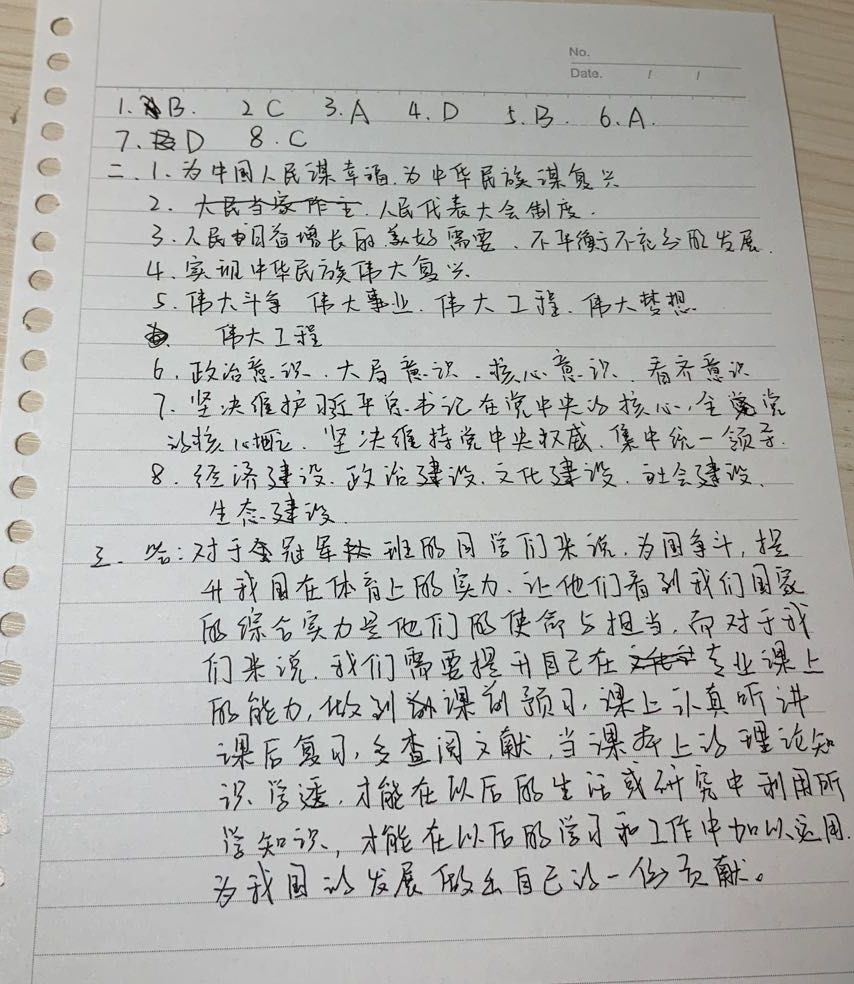 No.
Date. / /
1. B. 2 C 3. A 4. D 5. B. 6. A.
7. D 8. C
二. 1. 为中国人民谋幸福, 为中华民族谋复兴
2. 人民当家作主. 人民代表大会制度.
3. 人民日益增长的美好需要、不平衡不充分的发展.
4. 实现中华民族伟大复兴
5. 伟大斗争 伟大事业. 伟大工程. 伟大梦想
伟大工程
6. 政治意识、大局意识、核心意识、看齐意识
7. 坚决维护习近平总书记在党中央的核心, 全党
的核心地位. 坚决维持党中央权威、集中统一领导.
8. 经济建设、政治建设、文化建设、社会建设、
生态建设.
三. 答: 对于冠军班的同学们来说, 为国争斗, 提
升我国在体育上的实力. 让他们看到我们国家
的综合实力是他们的使命与担当, 而对于我
们来说, 我们需要提升自己在专业课上
的能力, 做到课前预习, 课上认真听讲
课后复习, 多查阅文献, 当课本上的理论知
识学透, 才能在以后的生活或研究中利用所
学知识, 才能在以后的学习和工作中加以运用.
为我国的发展做出自己的一份贡献。